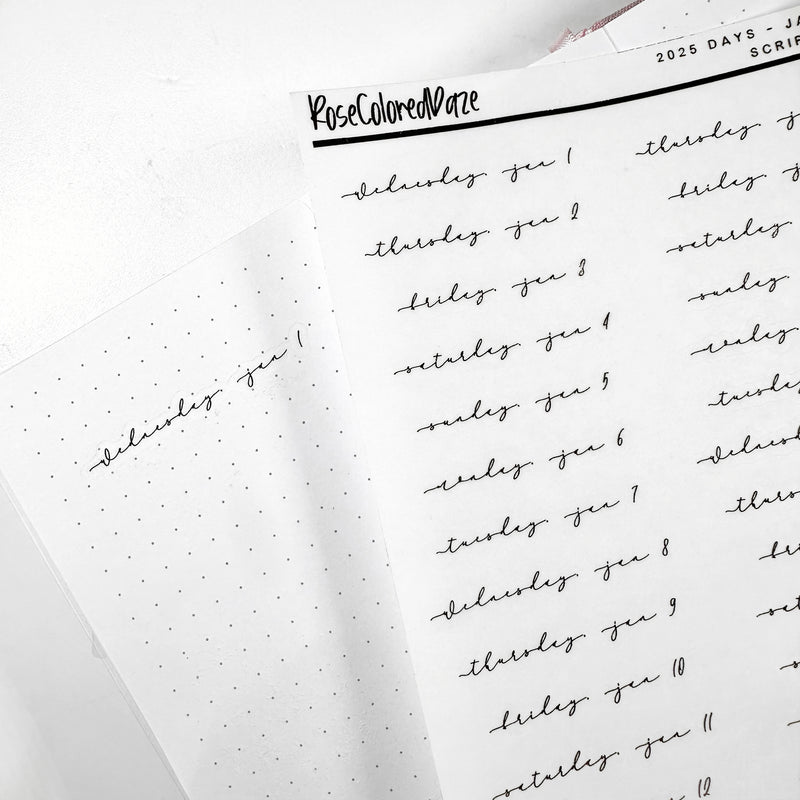 2025 DAYS - JA
SCRIP
RoseColoredDaze
wednesday. jan 1
thursday. jan 2
friday. jan 3
saturday. jan 4
sunday. jan 5
monday. jan 6
tuesday. jan 7
wednesday. jan 8
thursday. jan 9
friday. jan 10
saturday. jan 11
12
thursday. j
friday. j
saturday.
sunday.
monday.
tuesday
wednesd
thurs
fri
sat
s
wednesday. jan 1